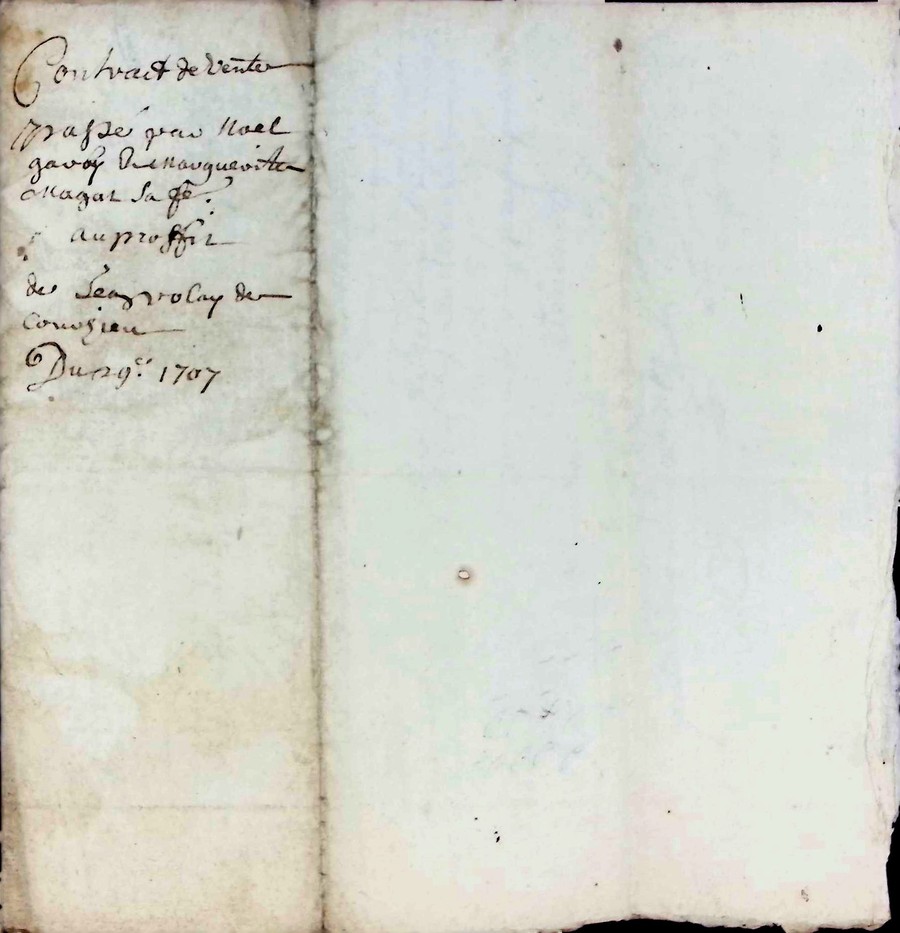 Contract de Vente
passé par Noel
gavoy & Marguerite
Magat sa fe.
au proffit
de Jean volay de
Courzieu
Du 1707